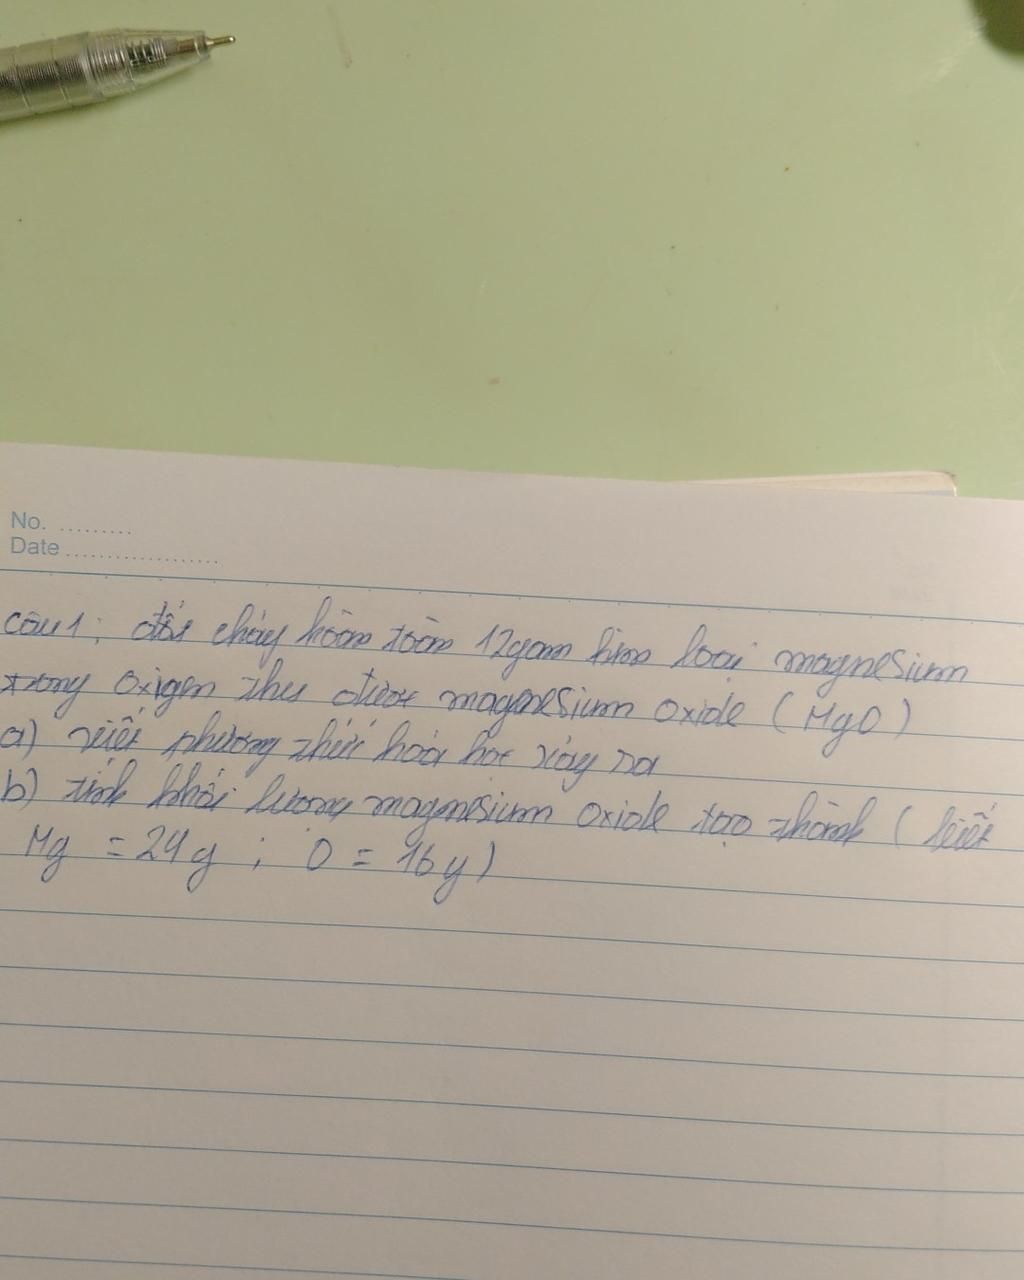 No. .........
Date ...................
Câu 1: đốt cháy hoàn toàn 12gam kim loại magnesium
trong oxigen thu được magnesium oxide (MgO)
a) viết phương thức hoá học xảy ra
b) tính khối lượng magnesium oxide tạo thành (biết
Mg = 24g ; O = 16g)